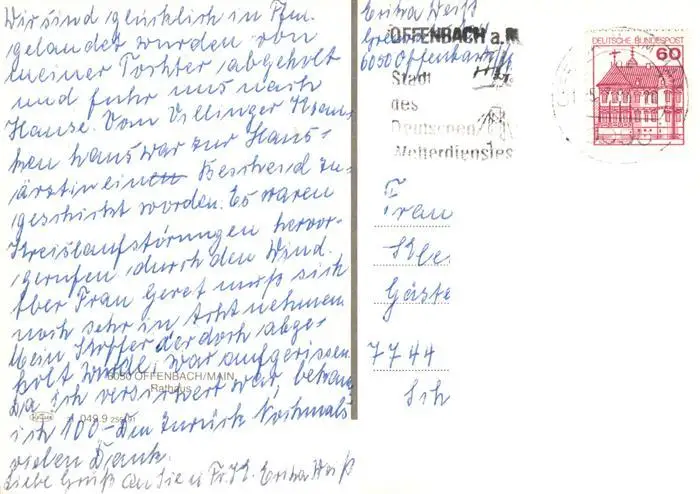 Wir sind glücklich in Ffm.
gelandet wurden von
meiner Tochter abgeholt
und fuhr uns nach
Hause. Vom Villinger Kran-
kenhaus war zur Haus-
ärztin ein Bescheid zu-
geschickt worden. Es waren
Kreislaufstörungen hervor-
gerufen durch den Wind.
Aber Frau Geret muß sich
noch sehr in Acht nehmen
Mein Koffer der dort abge-
holt wurde, war aufgerissen
Da ich versichert war, bekam
ich 100- DM zurück Nochmals
vielen Dank.
Liebe Grüß an Sie u Fr. K. Erika Weiß
6050 OFFENBACH/MAIN
Rathaus
049.9
Erika Weiß
6050 Offenbach
OFFENBACH a.M
Stadt
des
Deutschen
Wetterdienstes
DEUTSCHE BUNDESPOST
60
Frau
Kle
Gäste
7744